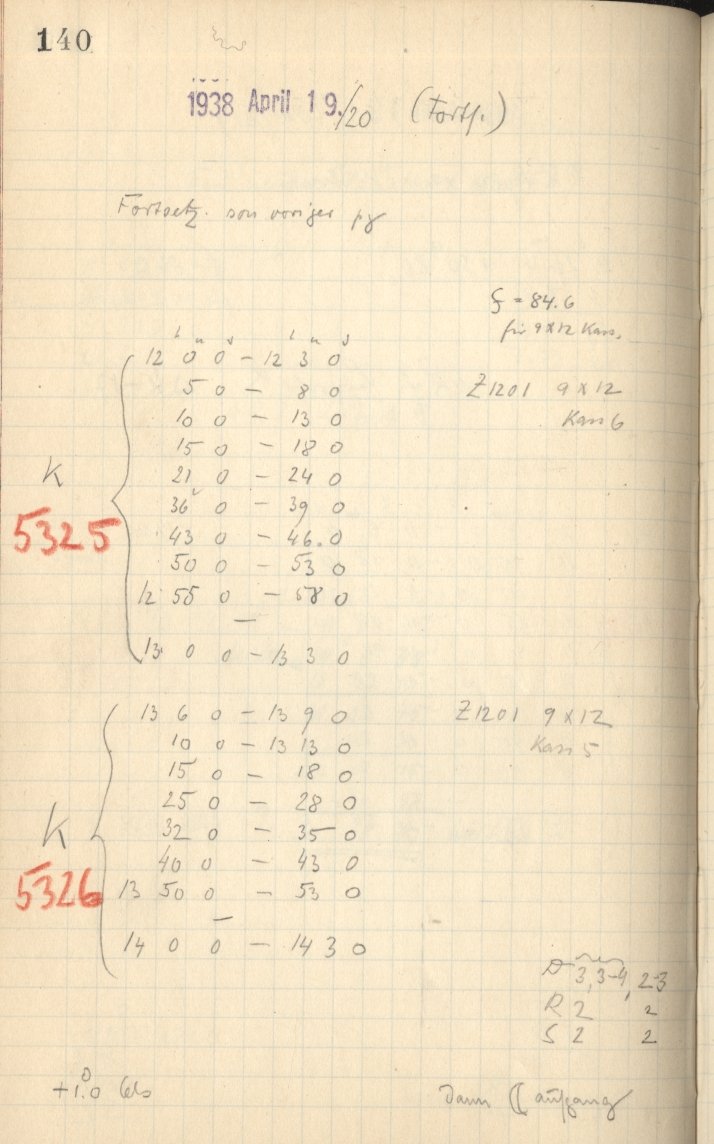 140
1938 April 19./20 (Forts.)
Fortsetz. von voriger pg
ζ = 84.6
für 9x12 Kass.
h m s h m s
12 0 0 - 12 3 0
5 0 - 8 0
Z1201 9 x 12
10 0 - 13 0
Kass 6
15 0 - 18 0
K
21 0 - 24 0
36 0 - 39 0
5325
43 0 - 46.0
50 0 - 53 0
12 55 0 - 58 0
—
13 0 0 - 13 3 0
13 6 0 - 13 9 0
Z1201 9 x 12
10 0 - 13 13 0
Kass 5
15 0 - 18 0
25 0 - 28 0
K
32 0 - 35 0
40 0 - 43 0
5326
13 50 0 - 53 0
—
14 0 0 - 14 3 0
D 3, 3-4, 2-3
R 2 2
S 2 2
+1.0° Cels
Dann ☾ aufgang